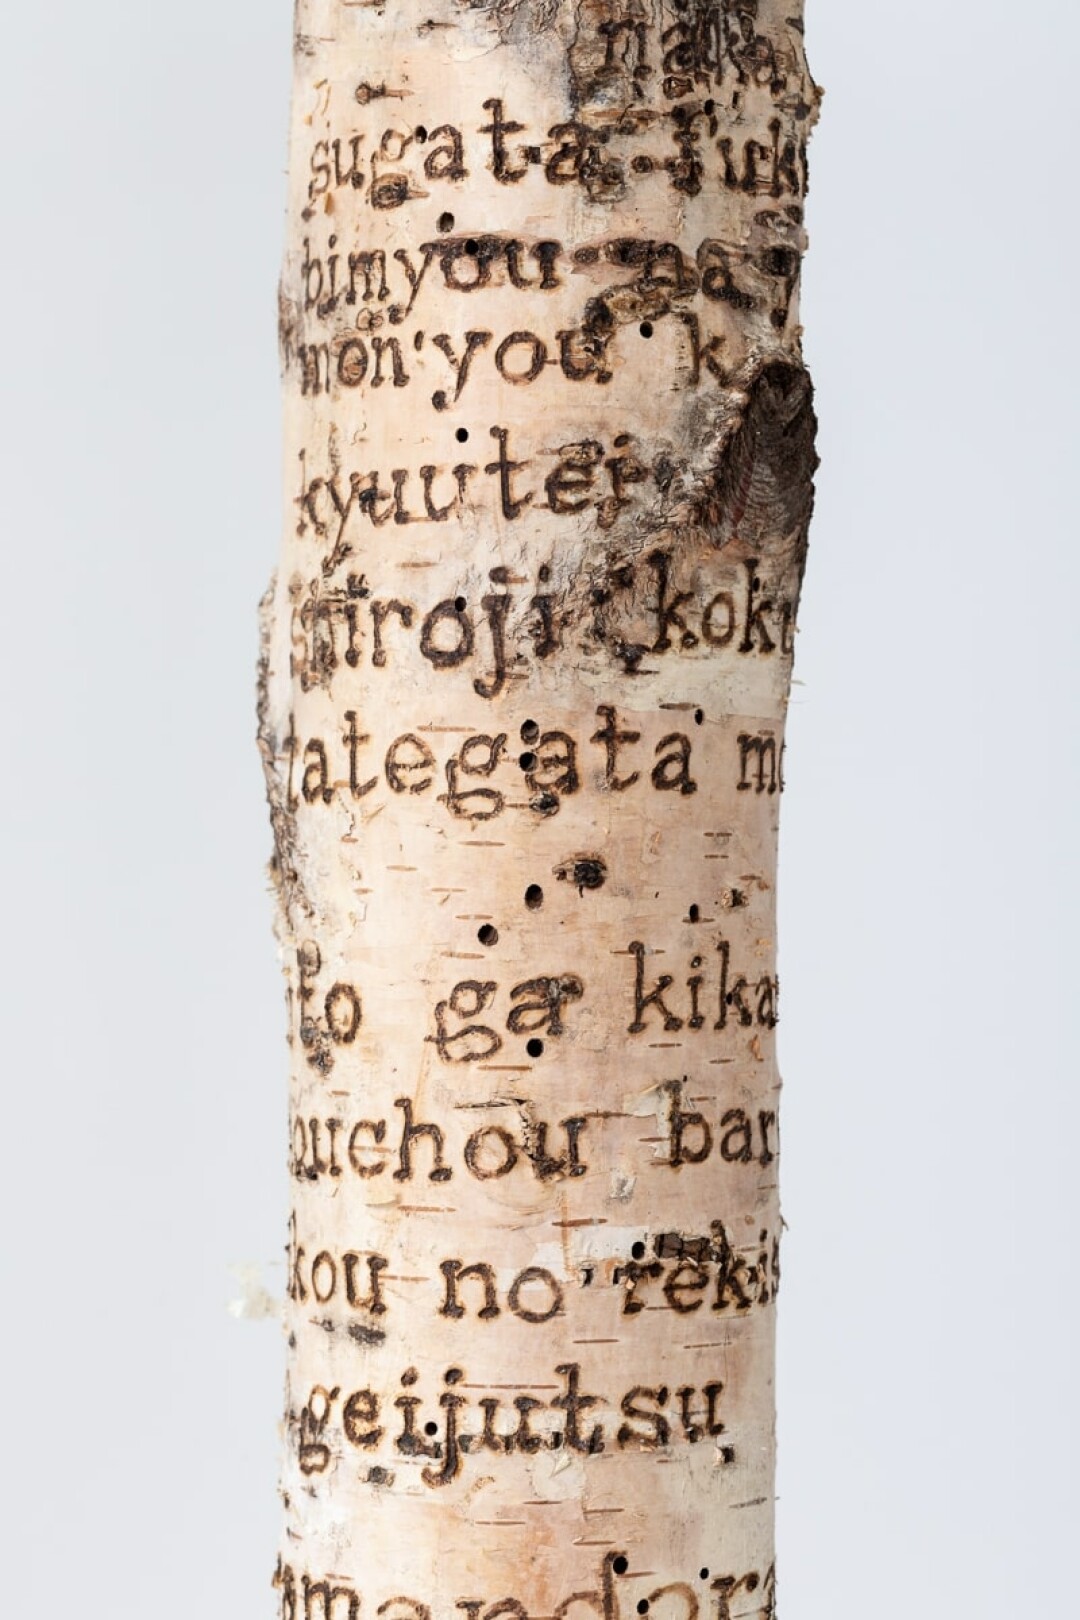 naka
sugata fuk
bimyou na
mon'you k
kyuutei
shiroji kok
tategata mo
ito ga kika
ouchou bar
kou no rekis
geijutsu